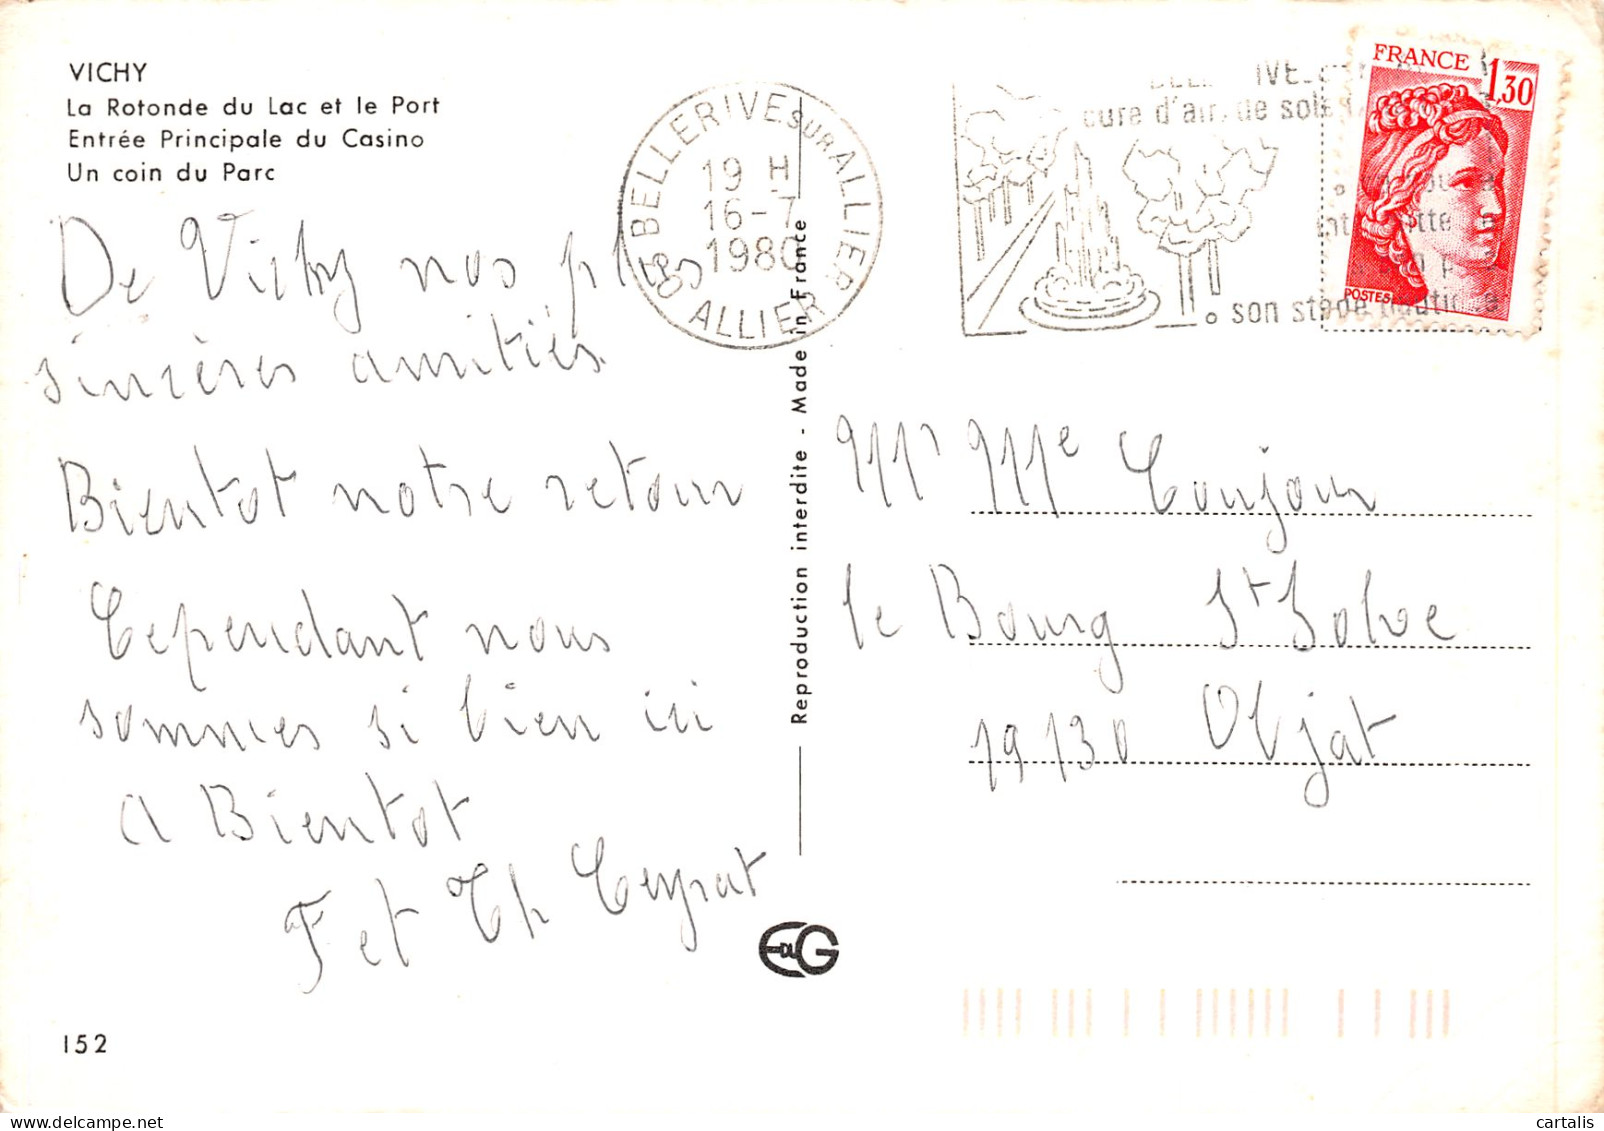 VICHY
La Rotonde du Lac et le Port
Entrée Principale du Casino
Un coin du Parc
De Vichy nos plus
sincères amitiés.
Bientot notre retour
Cependant nous
sommes si bien ici
A Bientot
F et Th Ceyrat
152
BELLERIVE SUR ALLIER
19 H
16-7
1980
03 ALLIER
cure d'air, de
son stade nautique
FRANCE 1,30
POSTES
Reproduction interdite - Made in France
Mr Mme Coujour
le Bourg St Solve
19130 Objat
EDUG
cartalis